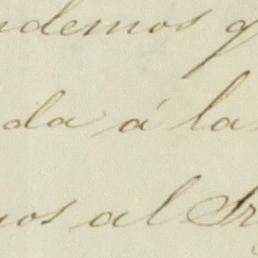 ndemos q
da á la
nos al Sr